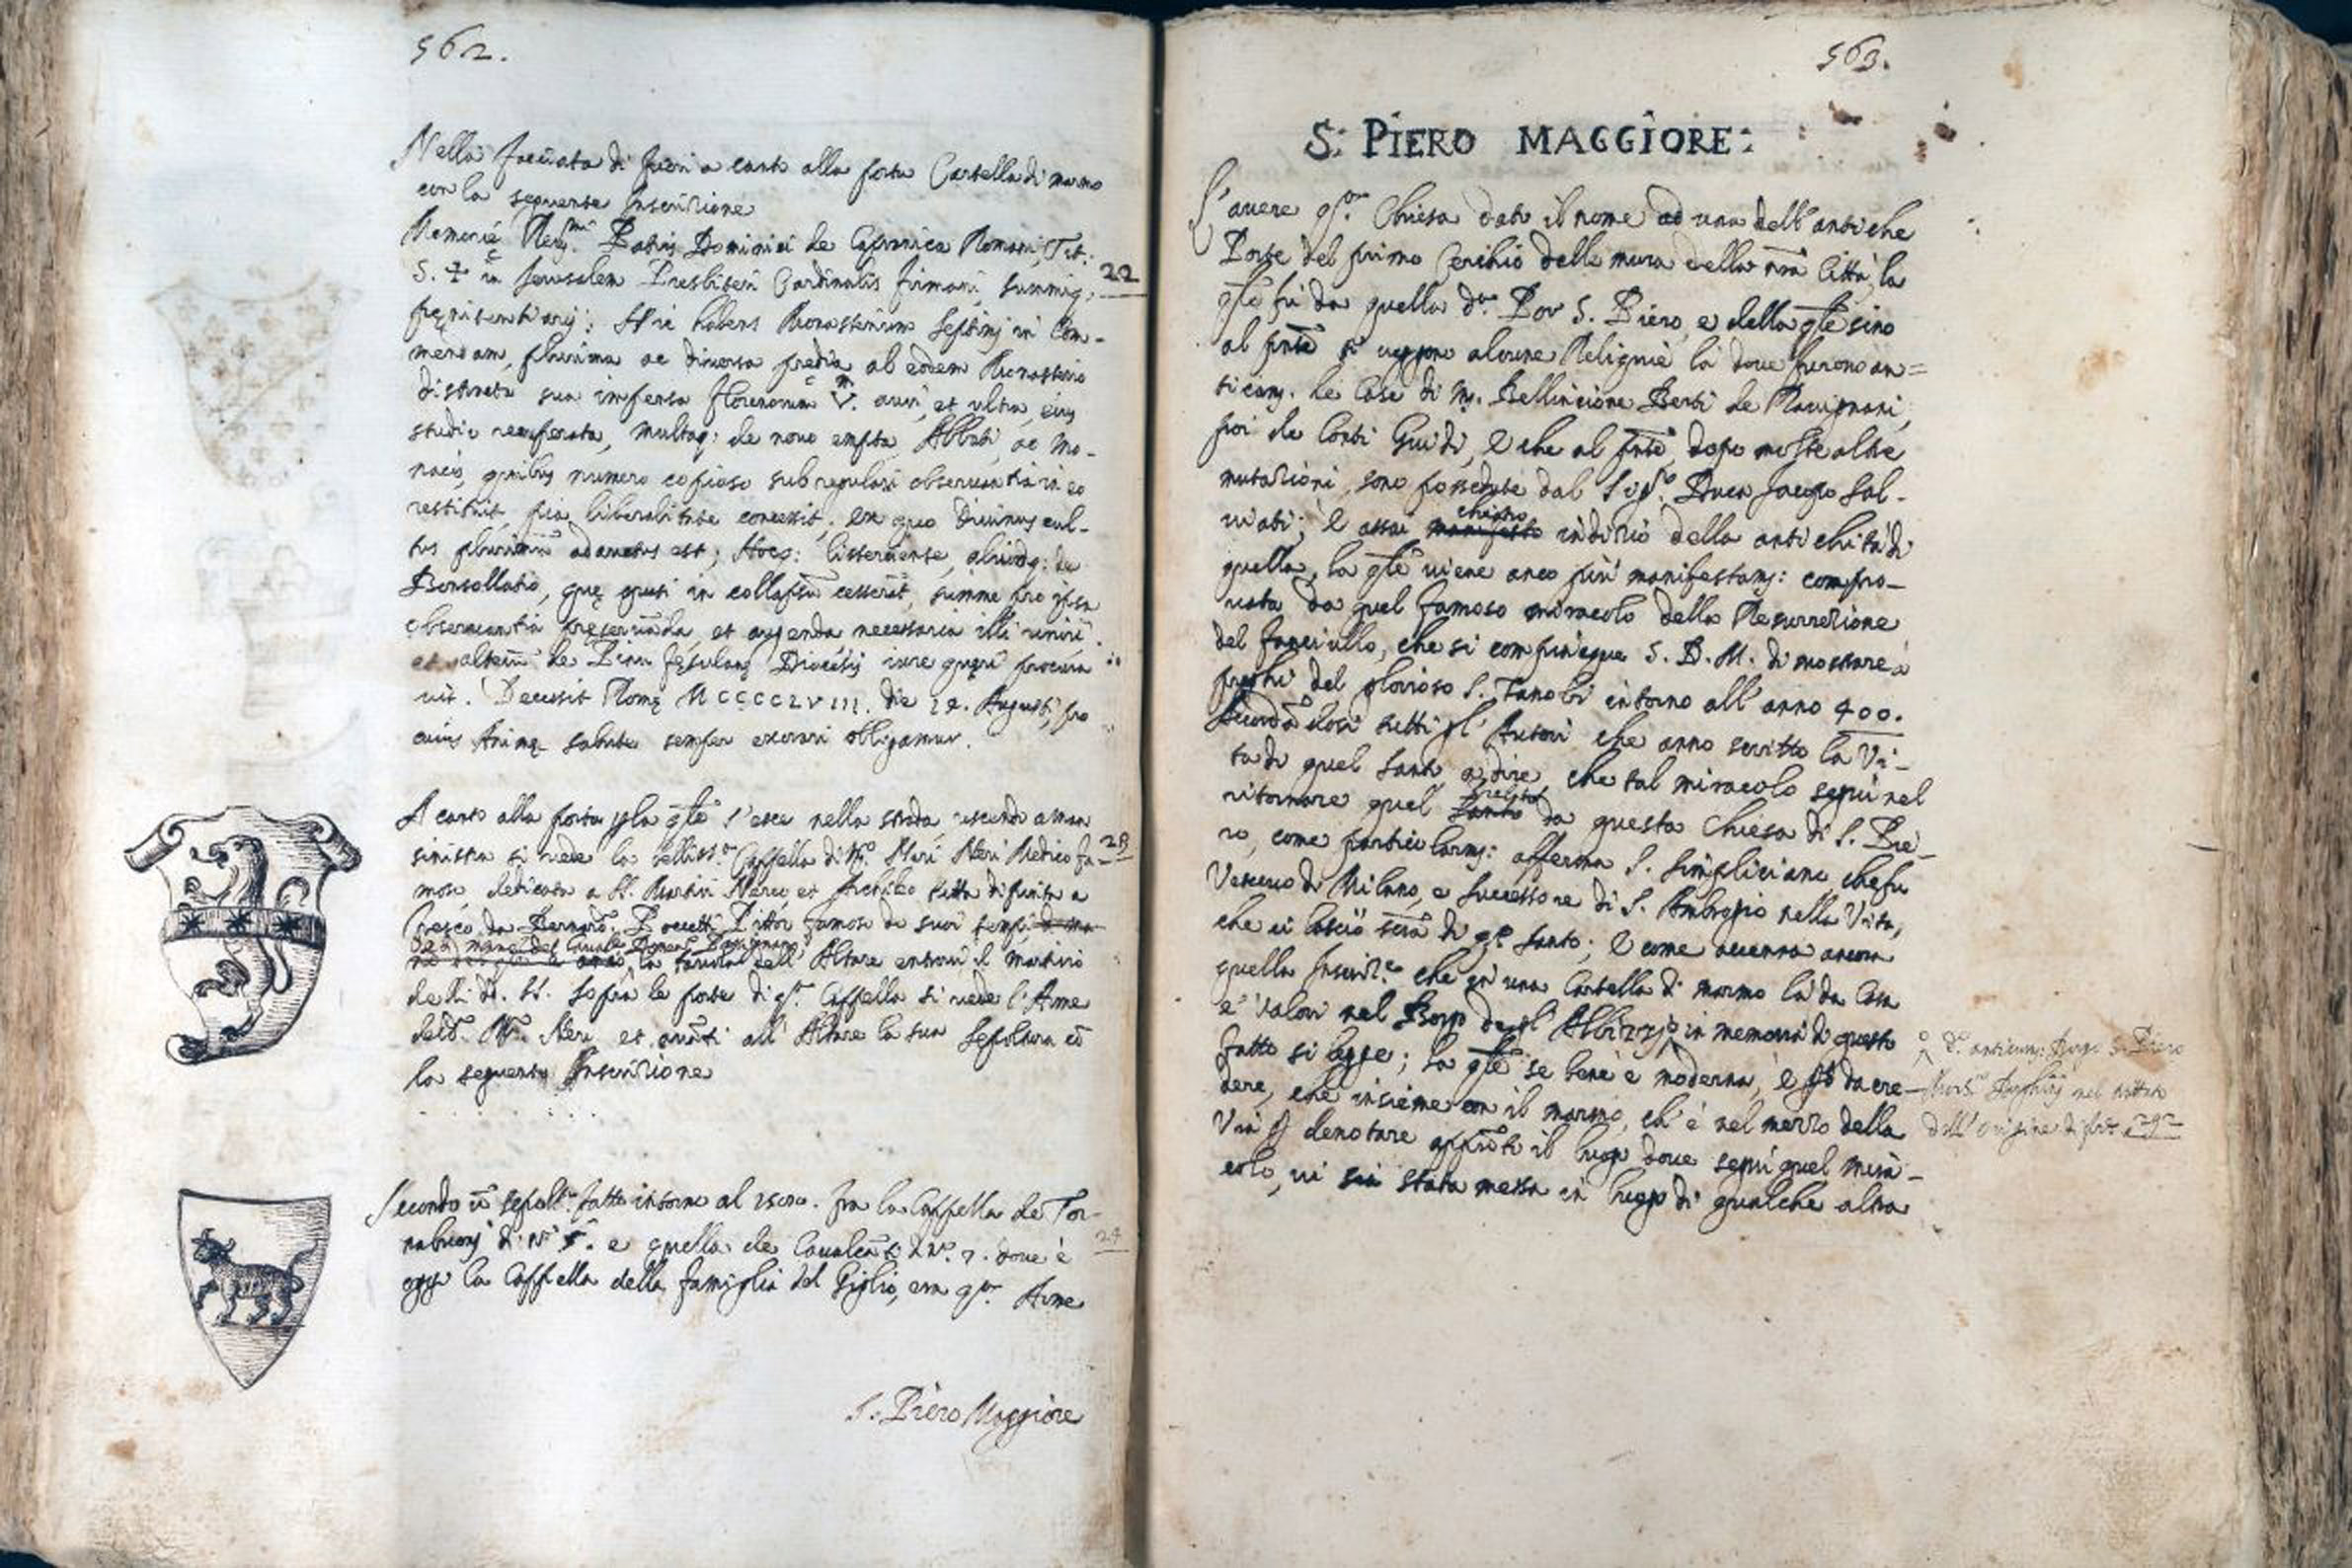 562.
Nella facciata di fuori a canto alla porta Cartella di marmo
con la seguente Inscrizione
Memorię Rev.mi Patris Dominici de Capranica Romani, Tit:
S. ☩ in Jerusalem Presbiteri Cardinalis Firmani, Summiq;
22
pęnitentiarij: Hic habens Monasterium Septimi in Com-
mendam, plurima ac diversa prędia ab eodem Monasterio
distracta sua impensa florenorum V.m auri, et ultra, eius
studio recuperata, multaq: de novo empta, Abbati, ac Mo-
nacis, quibus numero copioso sub regulari observantia in eo
restituit, pia liberalitate concessit, ex quo Divinus cul-
tus plurimũ adauctus est; Hocq: Cisterciense, aliudq: de
Bonsollatio, quę quasi in collapsũ cesserãt, summe pro ipsa
observantia preservãda, et augenda necessaria illi uniri
et alterũ de Fesulanę Diocesis iure procura
vit. Decessit Romę MCCCCLVIII. die 14. Augusti, pro
cuius Animę salute semper exorari obligamur.
A canto alla porta p la qłe s'esce nella strada, uscendo a man
sinistra si vede la belliss.a Cappella di M.o Neri Neri Medico fa-
23
moso, dedicata a SS. Martiri Nereo, et Archileo tutta dipinta a
fresco da Bernard.o Poccetti Pittor famoso de suoi tempi
la tavola dell' Altare entrovi il martirio
delli dd. SS. Sopra le porte di q.ta Cappella si vede l'Arme
del d.o M.o Neri, et avãti all' Altare la sua sepoltura cõ
la seguente Inscrizione
Secondo ũ sepolt.o fatto intorno al 1500. fra la Cappella de Tor-
nabuoni di N.o 5. e quella de Cavalcãti d N.o 7. dove è
24
oggi la Cappella della famiglia del Giglio, era q.ta Arme
S: Piero Maggiore
563.
S: PIERO MAGGIORE:
L'avere q.ta Chiesa dato il nome ad una dell'antiche
Porte del primo Cerchio delle mura della nrã Città, la
qłe fu da quella d.a Por S. Piero, e della qłe sino
al pntẽ si veggon alcune Reliquie là dove furono an=
ticam. le Case di M. Bellincione Berti de Ravignani,
poi de Conti Guidi, e che al pntẽ, dopo molte altre
mutazioni, sono possedute dal Sig.r Duca Jacopo Sal-
viati; è assai manifesto chiaro indizio della antichità di
quella, la qłe viene anco più manifestam: compro-
vata da quel famoso miracolo della Resurrezione
del fanciullo, che si compiacque S. D. M. di mostrare a
preghi del glorioso S. Zanobi intorno all' anno 400.
accordãdosi tutti gl' Autori che anno scritto la Vi-
ta di quel Santo a dire, che tal miracolo seguì nel
ritornare quel Santo Prelato da questa Chiesa di S. Pie-
ro, come particolarm: afferma S. Simpliciano, che fu
Vescovo di Milano, e successore di S. Ambrogio nella Vita,
che ci lasciò scrã di q.to Santo; e come accenna ancora
quella Inscriz.e che in una Cartella di marmo là da Casa
e' Valori nel Borgo degl' Albizzi, in memoria di questo
fatto si legge; la qłe se bene è moderna, è p da cre-
dere, che insieme con il marmo, ch' è nel mezzo della
Via p denotare appũto il luogo dove seguì quel mira-
colo, vi sia stata messa in luogo di qualche altra
d.o anticam: Borgo S. Piero
nel trattato
dell' origine di